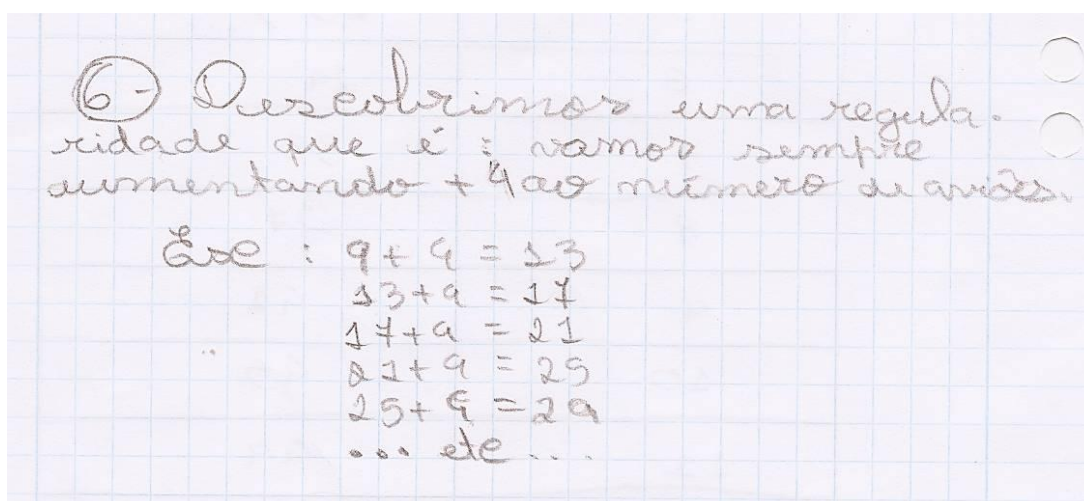 6- Descobrimos uma regula-
ridade que é: vamos sempre
aumentando +4 ao número de aviões.
Exe: 9+4=13
13+4=17
17+4=21
21+4=25
25+4=29
... etc ...